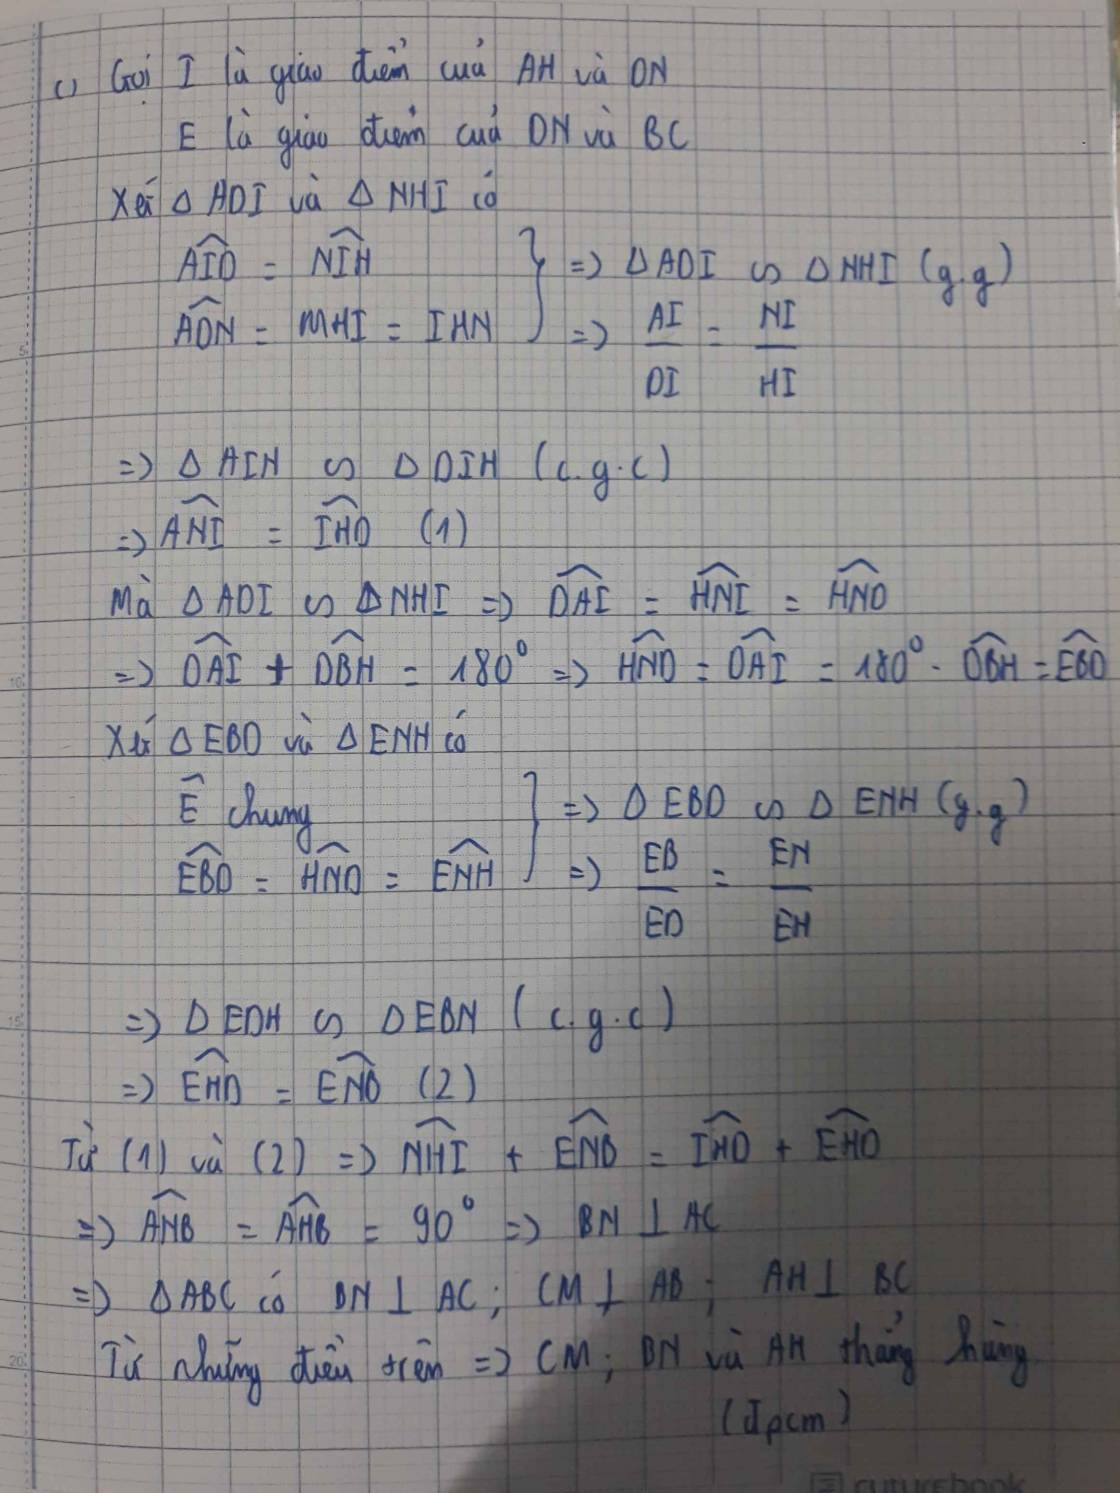 c) Gọi I là giao điểm của AH và DN
E là giao điểm của DN và BC
Xét Δ ADI và Δ NHI có
AID = NIH => Δ ADI ∽ Δ NHI (g.g)
ADN = MHI = IHN => AI/DI = NI/HI
=> Δ AIN ∽ Δ DIH (c.g.c)
=> ANI = IHD (1)
Mà Δ ADI ∽ Δ NHI => DAI = HNI = HND
=> DAI + DBH = 180° => HND = DAI = 180° - DBH = EBD
Xét Δ EBD và Δ ENH có
E chung => Δ EBD ∽ Δ ENH (g.g)
EBD = HND = ENH => EB/ED = EN/EH
=> Δ EDH ∽ Δ EBN (c.g.c)
=> EHD = ENB (2)
Từ (1) và (2) => NHI + ENB = IHD + EHD
=> ANB = AHB = 90° => BN ⊥ AC
=> Δ ABC có BN ⊥ AC; CM ⊥ AB; AH ⊥ BC
Từ những điều trên => CM; BN và AH thẳng hàng
(đpcm)
futurebook
5
10
15
20